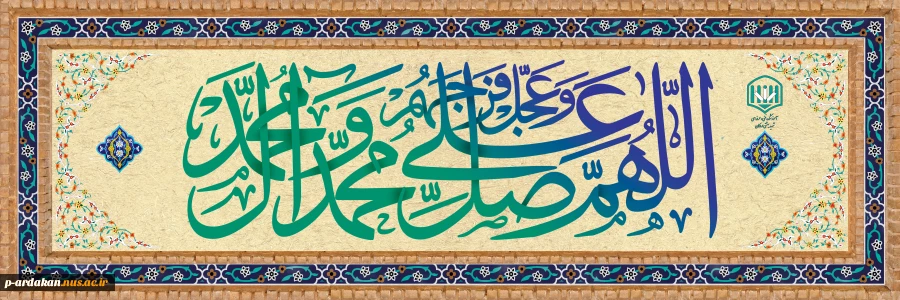 اللّهُمَّ صَلِّ عَلی مُحَمَّد وَآلِ مُحَمَّد وَعَجِّل فَرَجَهُم
p-ardakan.nus.ac.ir